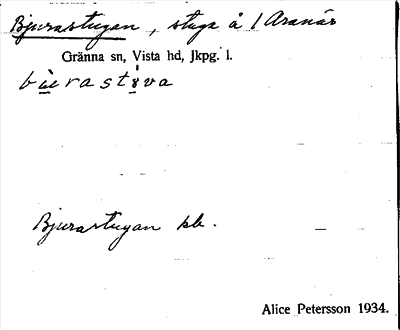 Bjurastugan, stuga å 1 Aranäs
Gränna sn, Vista hd, Jkpg. l.
Bjurastugan kb.
Alice Petersson 1934.